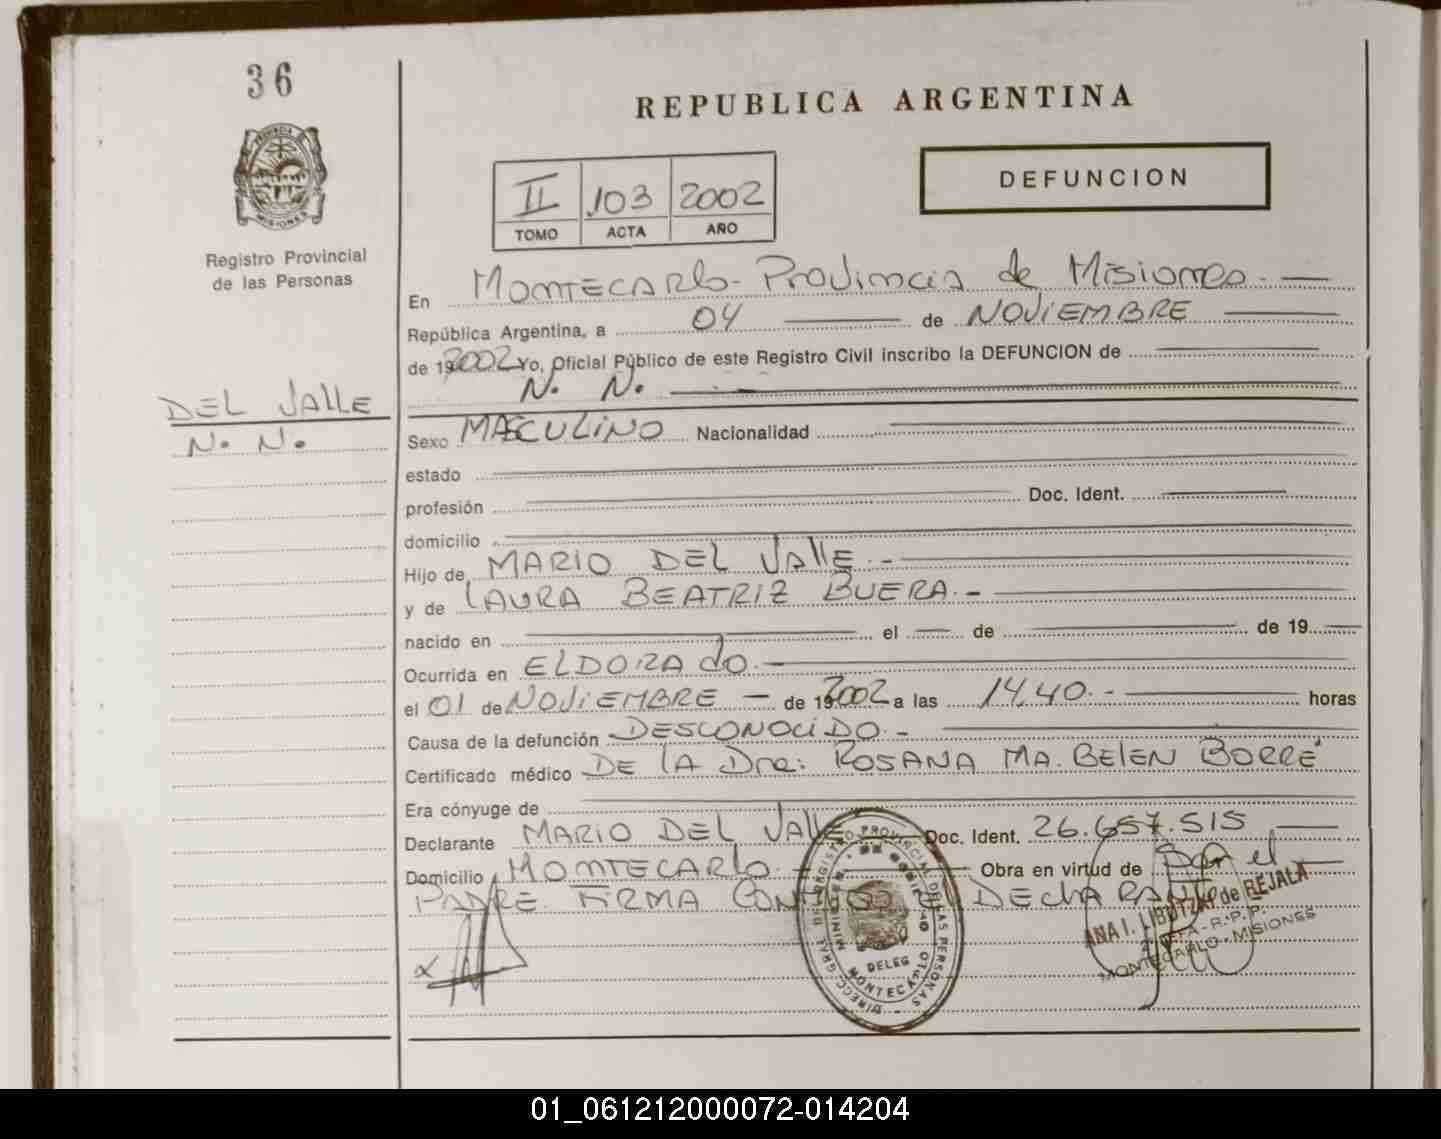 36
REPUBLICA ARGENTINA
PROVINCIA
MISIONES
DEFUNCION
II 103 2002
TOMO ACTA AÑO
Registro Provincial
de las Personas
En MONTECARLO - PROVINCIA de MISIONES.
República Argentina, a 04 de NOVIEMBRE
de 19 2002 Yo, Oficial Público de este Registro Civil inscribo la DEFUNCION de
N. N.
DEL VALLE
N. N.
Sexo MASCULINO Nacionalidad
estado
profesión Doc. Ident.
domicilio
Hijo de MARIO DEL VALLE.-
y de LAURA BEATRIZ BUERA.-
nacido en el de de 19
Ocurrida en ELDORADO.-
el 01 de NOVIEMBRE - de 19 2002 a las 14,40.- horas
Causa de la defunción DESCONOCIDO.-
Certificado médico DE LA Dra: ROSANA MA. BELEN BORRÉ
Era cónyuge de
Declarante MARIO DEL VALLE Doc. Ident. 26.657.515
Domicilio MONTECARLO.- Obra en virtud de ser el
PADRE. FIRMA CONMIGO EL DECLARANTE
ANA I. de REJALA
R.P.P.
MONTECARLO - MISIONES
DIRECC. GRAL. DEL REGISTRO PROVINCIAL DE LAS PERSONAS
DELEG
MONTECARLO
01_061212000072-014204